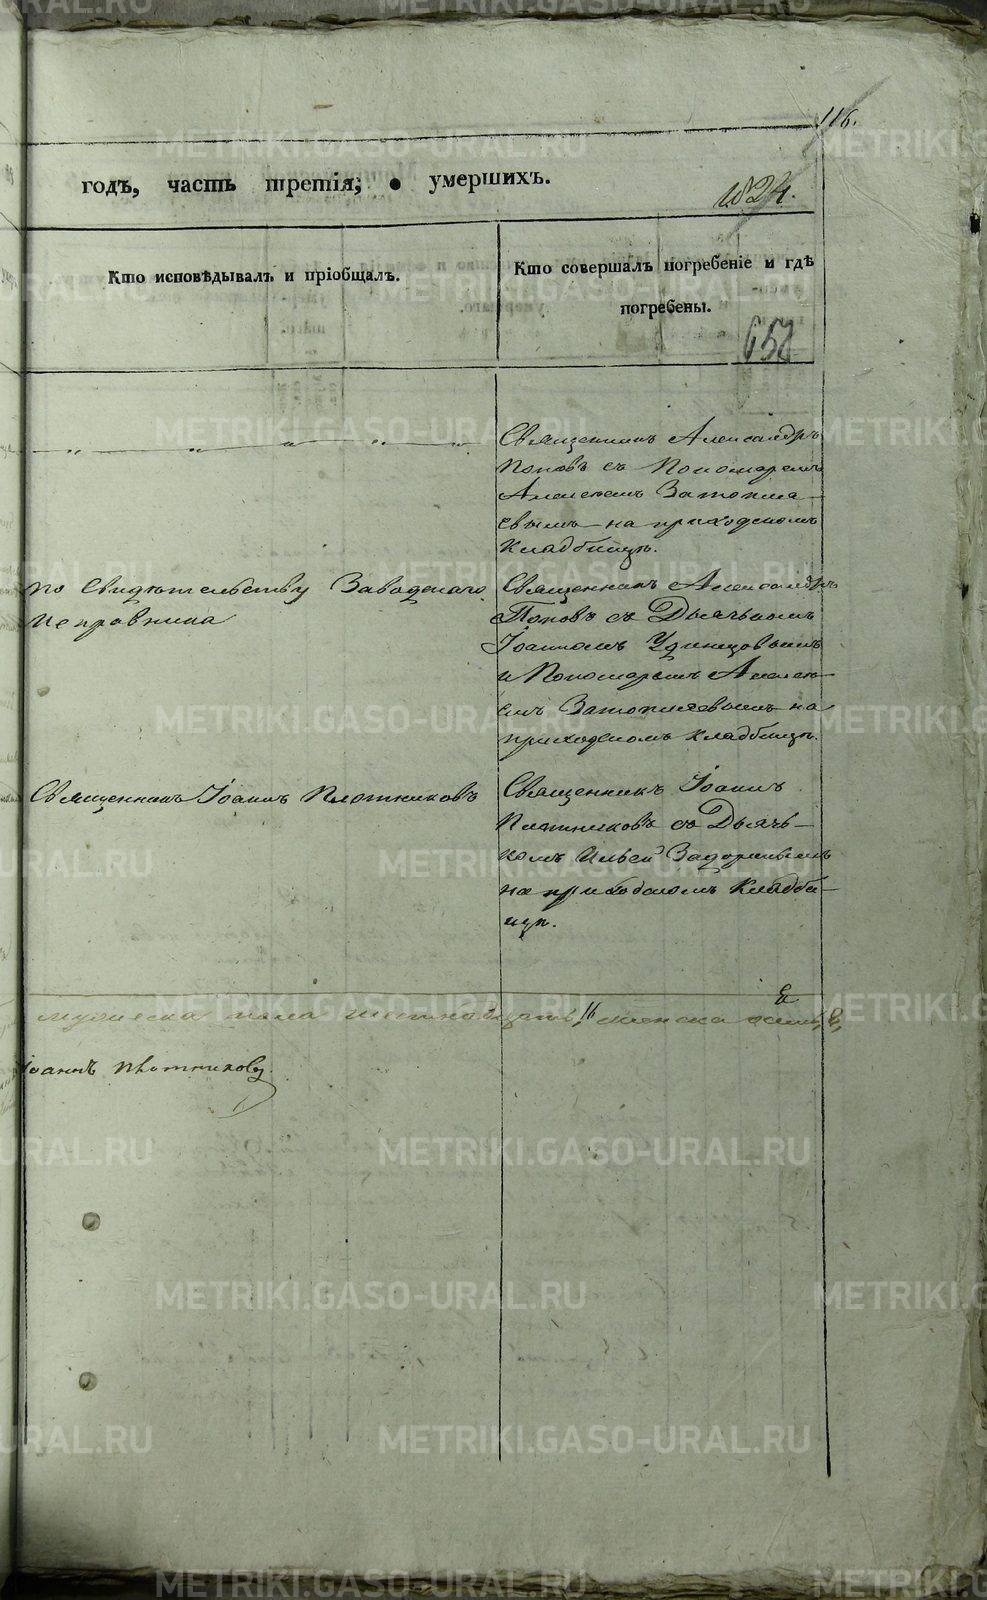 116.
годъ, часть третія, о умершихъ.
1824.
Кто исповѣдывалъ и пріобщалъ.
Кто совершалъ погребеніе и гдѣ
погребены.
658
Священникъ Александръ
Поповъ съ Пономаремъ
Алексѣемъ Затопля-
евымъ на приходскомъ
кладбищѣ.
по Свидѣтельству Заводскаго
Исправника
Священникъ Александръ
Поповъ съ Дьячькомъ
Іоанномъ Удинцовымъ
и Пономаремъ Алексѣ-
емъ Затопляевымъ на
приходскомъ кладбищѣ.
Священникъ Іоаннъ Плотниковъ
Священникъ Іоаннъ
Плотниковъ съ Дьячь-
комъ Ильей Задоринымъ
на приходскомъ кладби-
щѣ.
мужеска пола шестнадцать 16 женска осмь, 8,
Іоаннъ Плотниковъ
METRIKI.GASO-URAL.RU